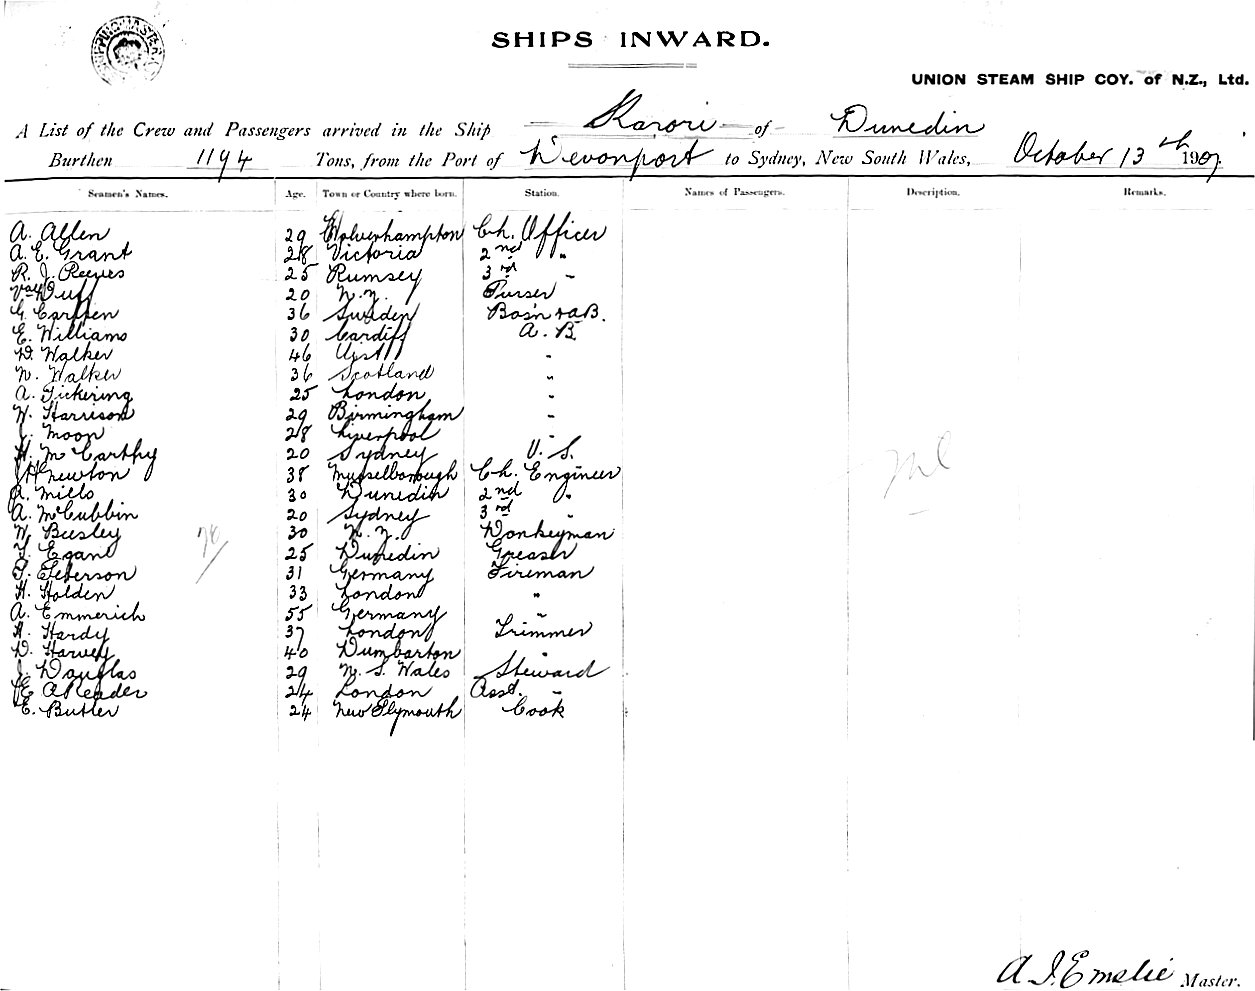 SHIPPING MASTER
SHIPS INWARD.
UNION STEAM SHIP COY. of N.Z., Ltd.
A List of the Crew and Passengers arrived in the Ship Karori of Dunedin
Burthen 1194 Tons, from the Port of Devonport to Sydney, New South Wales, October 13th 1907.
Seamen's Names. Age. Town or Country where born. Station. Names of Passengers. Description. Remarks.
A. Allen 29 Wolverhampton Ch. Officer
A. E. Grant 28 Victoria 2nd "
R. J. Reeves 25 Rumsey 3rd "
Duff 20 N.Z. Purser
G. 36 Sweden Bos'n & A.B.
E. Williams 30 Cardiff A. B.
D. Walker 46 "
N. Walker 36 Scotland "
A. Pickering 25 London "
W. Harrison 29 Birmingham "
J. Moon 28 Liverpool "
H. McCarthy 20 Sydney O. S.
J H Newton 38 Musselborough Ch. Engineer
A. Mills 30 Dunedin 2nd "
A. McCubbin 20 Sydney 3rd "
W. Beesley 30 N. Z. Donkeyman
T. Egan 25 Dunedin Greaser
P. Peterson 31 Germany Fireman
H. Holden 33 London "
A. Emmerich 55 Germany "
A. Hardy 37 London Trimmer
D. Harvey 40 Dumbarton "
J. Douglas 29 N. S. Wales Steward
E. A Reader 24 London Asst. "
E. Butler 24 New Plymouth Cook
Nil
A. J. Emslie Master.